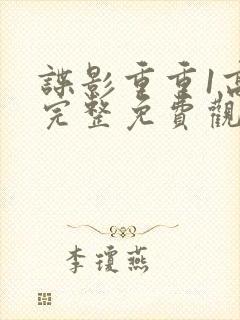 諜影重重1高
完整免費觀
李瓊燕